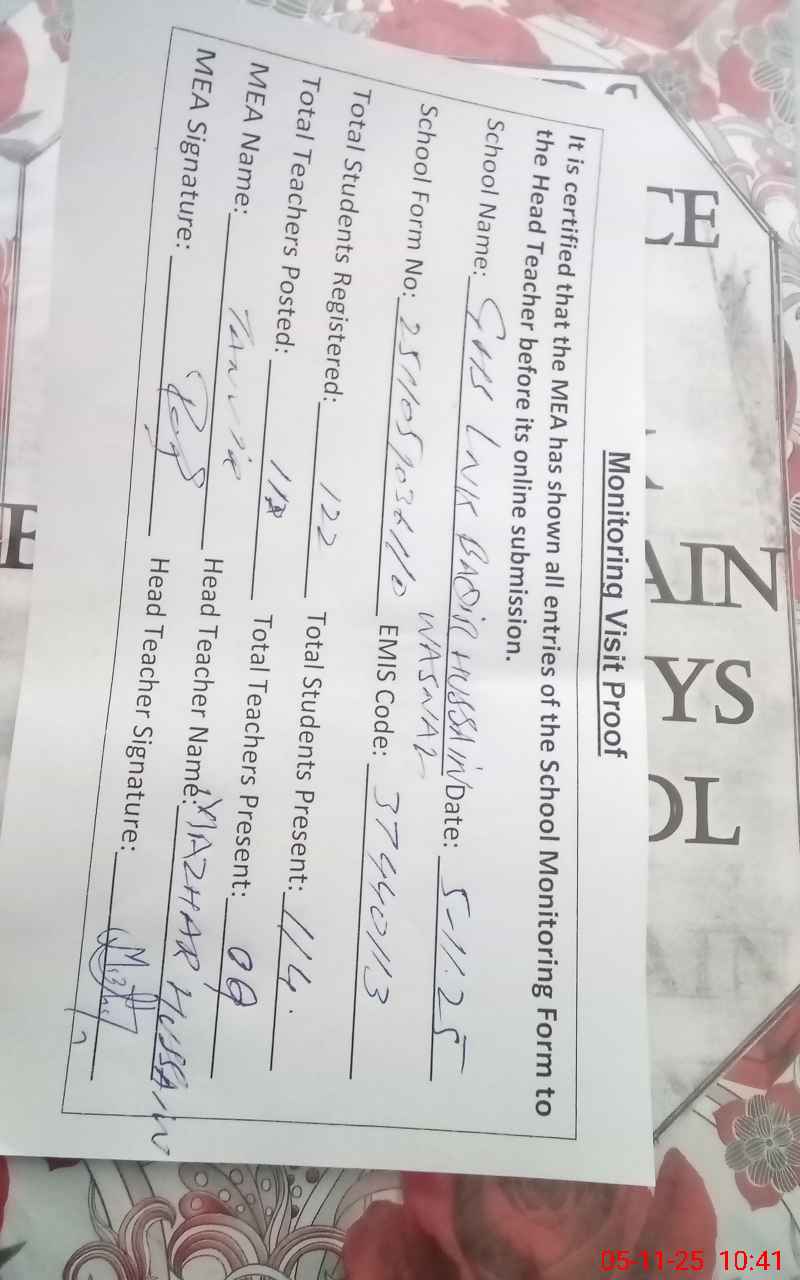 Monitoring Visit Proof
It is certified that the MEA has shown all entries of the School Monitoring Form to
the Head Teacher before its online submission.
School Name: HUSSAIN Date: 5-11.25
WASNAL
School Form No: EMIS Code: 37440113
Total Students Registered: 122 Total Students Present: 114.
Total Teachers Posted: 11 Total Teachers Present: 09
MEA Name: Tanvir Head Teacher Name: MAZHAR HUSSAIN
MEA Signature: Head Teacher Signature:
CE
AIN
YS
OL
05-11-25 10:41